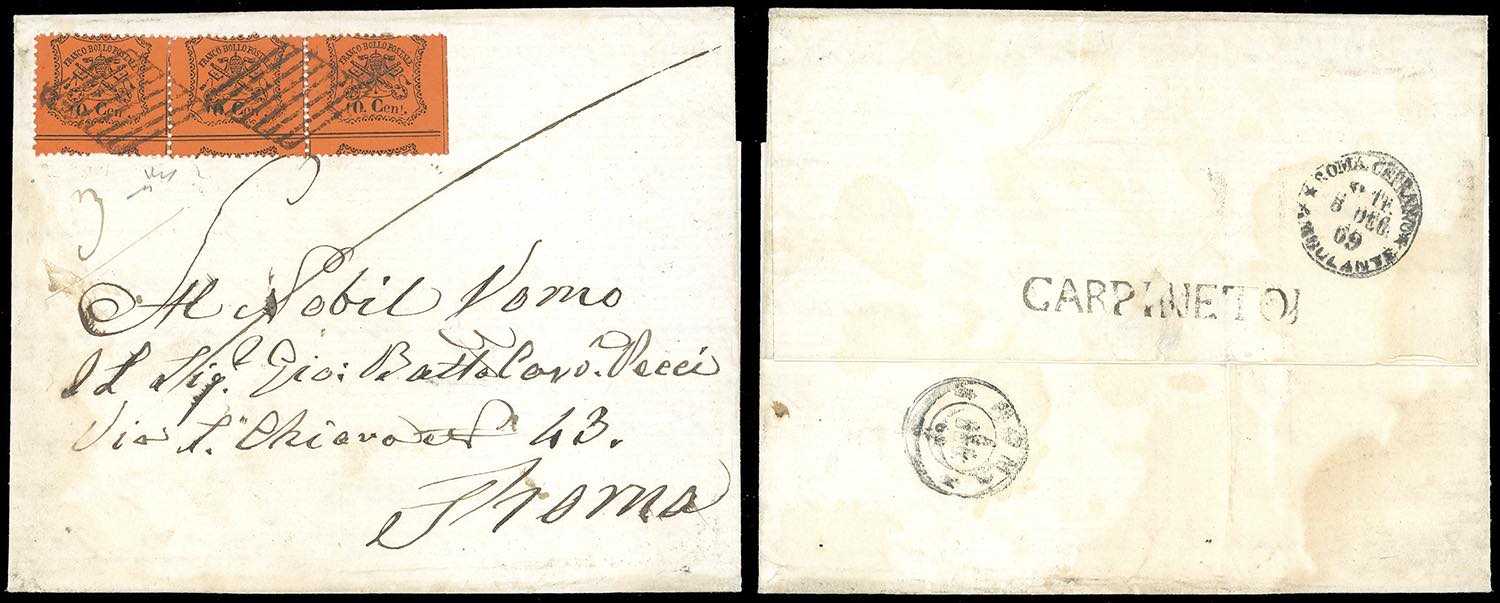 FRANCO BOLLO POSTALE FRANCO BOLLO POSTALE FRANCO BOLLO POSTALE
10 Cent. 10 Cent. 10. Cent.
3
Al Nobil Vomo
Il Sig.r Gio: Batta Cav. Pecci
Via S. Chiara 43.
Roma
ROMA
AMBULANTE
5 DEC.
69
CARPINETO
ROMA
DEC
69